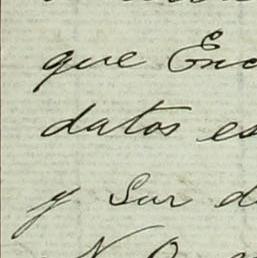 que Enc
datos es
y Sur d